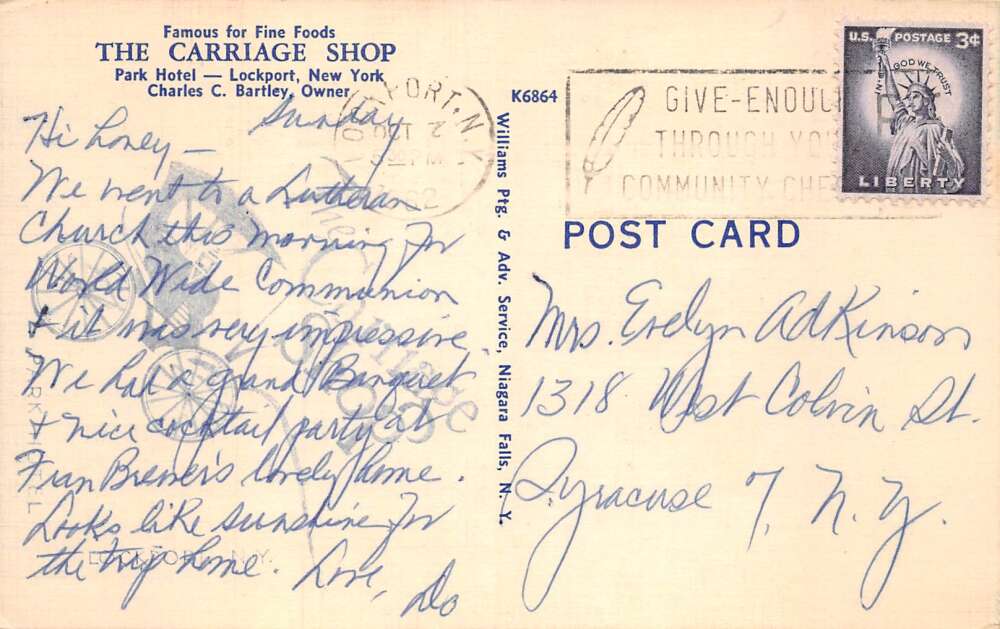 Famous for Fine Foods
THE CARRIAGE SHOP
Park Hotel — Lockport, New York
Charles C. Bartley, Owner
Sunday
Hi Loney —
We went to a Lutheran
Church this morning for
World Wide Communion
& it was very impressive.
We had a grand Banquet
& nice cocktail party at
Fran Brewer's lovely home.
Looks like sunshine for
the trip home. Love,
Do
K6864
Williams Ptg. & Adv. Service, Niagara Falls, N. Y.
LOCKPORT, N.Y.
OCT
PM
GIVE-ENOUG
THROUGH YO
COMMUNITY CHE
U.S. POSTAGE 3¢
IN GOD WE TRUST
LIBERTY
POST CARD
Mrs. Evelyn Adkinson
1318 West Colvin St.
Syracuse 7, N. Y.
The Carriage Shop
PARK HOTEL
LOCKPORT, N.Y.